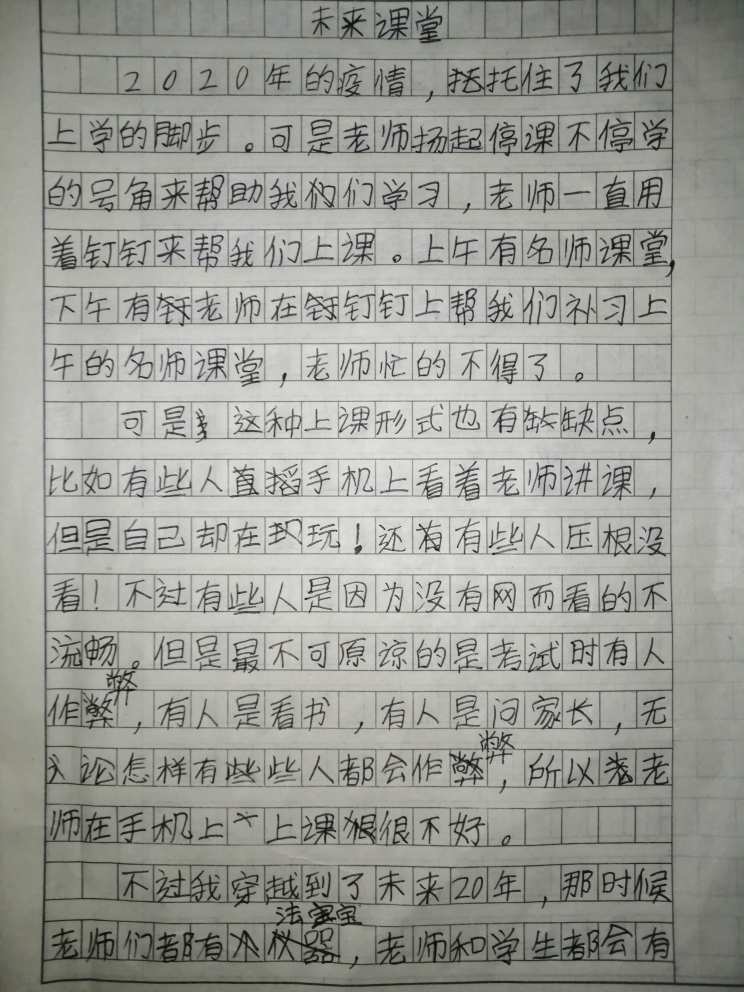 未来课堂
2020年的疫情，托住了我们
上学的脚步。可是老师扬起停课不停学
的号角来帮助我们学习，老师一直用
着钉钉来帮我们上课。上午有名师课堂，
下午有老师在钉钉上帮我们补习上
午的名师课堂，老师忙的不得了。
可是这种上课形式也有缺点，
比如有些人直播手机上看着老师讲课，
但是自己却在玩！还有有些人压根没
看！不过有些人是因为没有网而看的不
流畅。但是最不可原谅的是考试时有人
作弊，有人是看书，有人是问家长，无
论怎样有些些人都会作弊，所以老
师在手机上上课很不好。
不过我穿越到了未来20年，那时候
法宝
老师们都有，老师和学生都会有